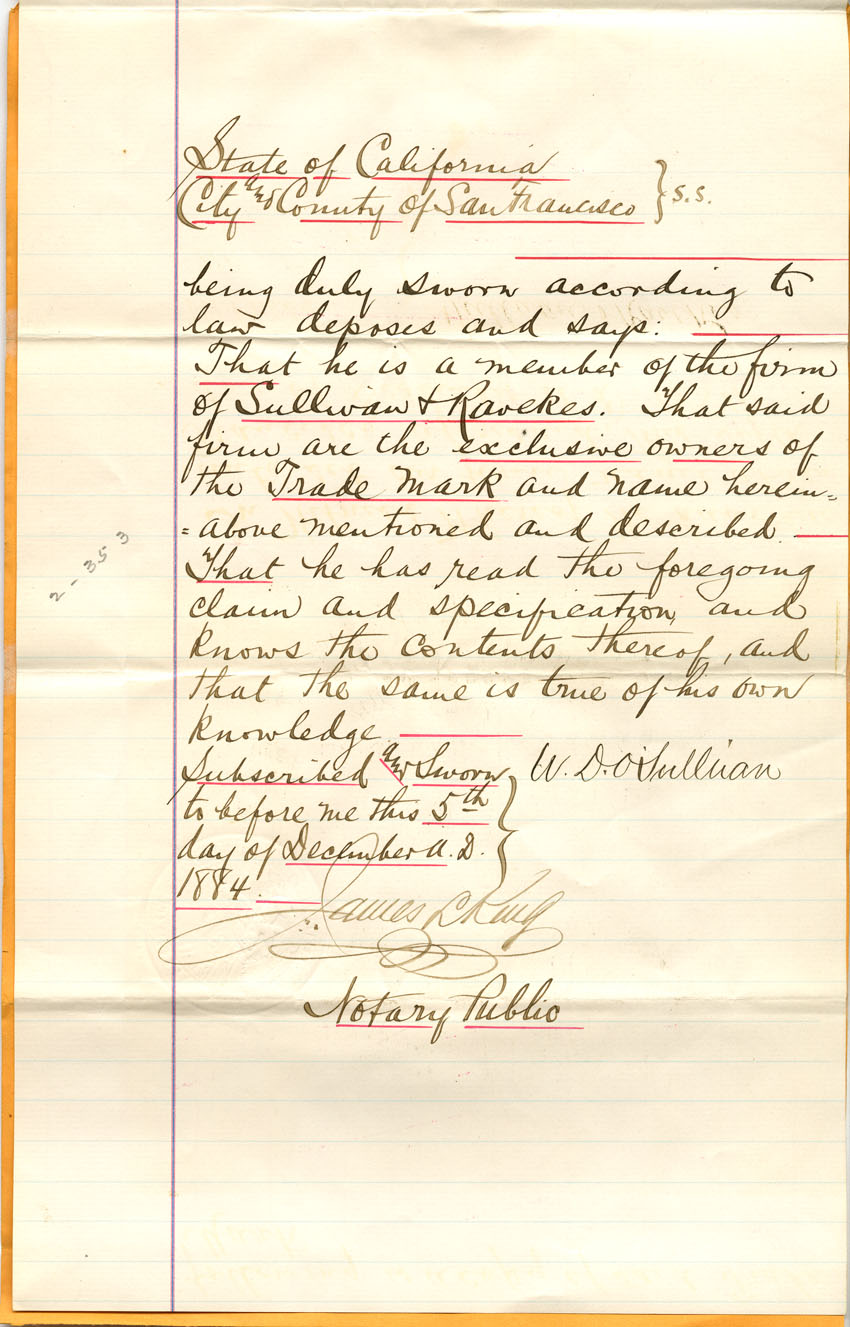 State of California
City and County of San Francisco } S.S.
being duly sworn according to
law deposes and says:
That he is a member of the firm
of Sullivan & Ravekes. That said
firm are the exclusive owners of
the Trade Mark and name herein=
=above mentioned and described
That he has read the foregoing
claim and specification, and
knows the contents thereof, and
that the same is true of his own
knowledge
Subscribed and Sworn
to before me this 5th
day of December A.D.
1884.
W. D. O'Sullivan
James L King
Notary Public
2-353